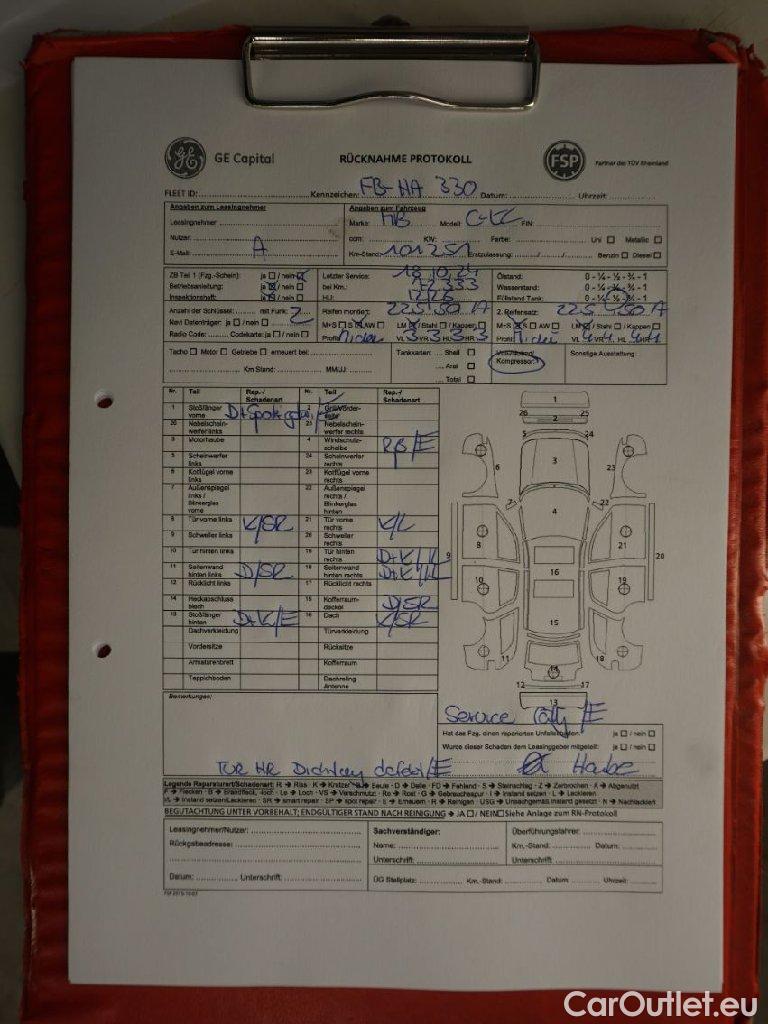 GE Capital RÜCKNAHME PROTOKOLL FSP Partner des TÜV Rheinland
FLEET ID: Kennzeichen: FB-HA 330 Datum: Uhrzeit:
Angaben zum Leasingnehmer Angaben zum Fahrzeug
Leasingnehmer Marke: MB Modell: FIN:
Nutzer: ccm: KW: Farbe: Uni Metallic
E-Mail: A Km-Stand: 101251 Erstzulassung: Benzin Diesel
ZB Teil 1 (Fzg.-Schein): ja / nein Letzter Service: 18.10.24 Ölstand: 0 - ¼ - ½ - ¾ - 1
Betriebsanleitung: ja / nein bei Km.: 72333 Wasserstand: 0 - ¼ - ½ - ¾ - 1
Inspektionsheft: ja / nein HU: Füllstand Tank: 0 - ¼ - ½ - ¾ - 1
Anzahl der Schlüssel: mit Funk: 2 Reifen montiert: 2. Reifensatz:
Navi Datenträger: ja / nein M+S S AW LM / Stahl / Kappen M+S S AW LM / Stahl / Kappen
Radio Code: Codekarte: ja / nein Profil VL 3 VR 3 HL 3 HR 3 Profil VL 4 VR 4 HL 4 HR 4
Tacho Motor Getriebe erneuert bei: Tankkarten: Shell Sonstige Ausstattung:
Kompressor:
Km Stand: MM/JJ: Aral
Total
Nr. Teil Rep.-/Schadenart Nr. Teil Rep.-/Schadenart
1 Stoßfänger vorne 2
20 Nebelscheinwerfer links 25 Nebelscheinwerfer rechts
3 Motorhaube 4 Windschutzscheibe
5 Scheinwerfer links 24 Scheinwerfer rechts
6 Kotflügel vorne links 23 Kotflügel vorne rechts
7 Außenspiegel links / Blinkerglas vorne 22 Außenspiegel rechts / Blinkerglas hinten
8 Tür vorne links K/SR 21 Tür vorne rechts K/L
9 Schweller links Schweller rechts
10 Tür hinten links 19 Tür hinten rechts
11 Seitenwand hinten links D/SR 18 Seitenwand hinten rechts
12 Rücklicht links 17 Rücklicht rechts
14 Heckabschluss blech 15 Kofferraumdeckel D/SR
13 Stoßfänger hinten D+K/E 16 Dach K/SR
Dachverkleidung Türverkleidung
Vordersitze Rücksitze
Armaturenbrett Kofferraum
Teppichboden Dachreling Antenne
Bemerkungen:
Service
Hat das Fzg. einen reparierten Unfallschaden: ja / nein
Wurde dieser Schaden dem Leasinggeber mitgeteilt: ja / nein
Tür HR Dichtung defekt/E
Legende Reparaturart/Schadenart: R → Riss · K → Kratzer · B → Beule · D → Delle · FD → Fehlend · S → Steinschlag · Z → Zerbrochen · A → Abgenutzt
F → Flecken · B → Brandfleck, -loch · Lo → Loch · VS → Verschmutz · Ro → Rost · G → Gebrauchsspur · I → Instand setzen · L → Lackieren
I/L → Instand setzen/Lackieren · SR → smart repair · SP → spot repair · E → Erneuern · R → Reinigen · USG → Unsachgemäß instand gesetzt · N → Nachlackiert
BEGUTACHTUNG UNTER VORBEHALT; ENDGÜLTIGER STAND NACH REINIGUNG → JA / NEIN Siehe Anlage zum RN-Protokoll
Leasingnehmer/Nutzer: Sachverständiger: Überführungsfahrer:
Rückgabeadresse: Name: Km.-Stand: Datum:
Unterschrift: Unterschrift:
Datum: Unterschrift: ÜG Stellplatz: Km.-Stand: Datum Uhrzeit:
CarOutlet.eu